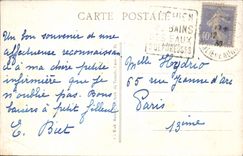 CARTE POSTALE
BAINS
EAUX
40
Un bon souvenir et une
affectueuse reconnaissance
à ma chère petite
infirmière que je
n'oublie pas. Bons
baisers à petit filleul
E. Biet
Melle Hydrio
65 rue Jeanne d'Arc
Paris
13ème